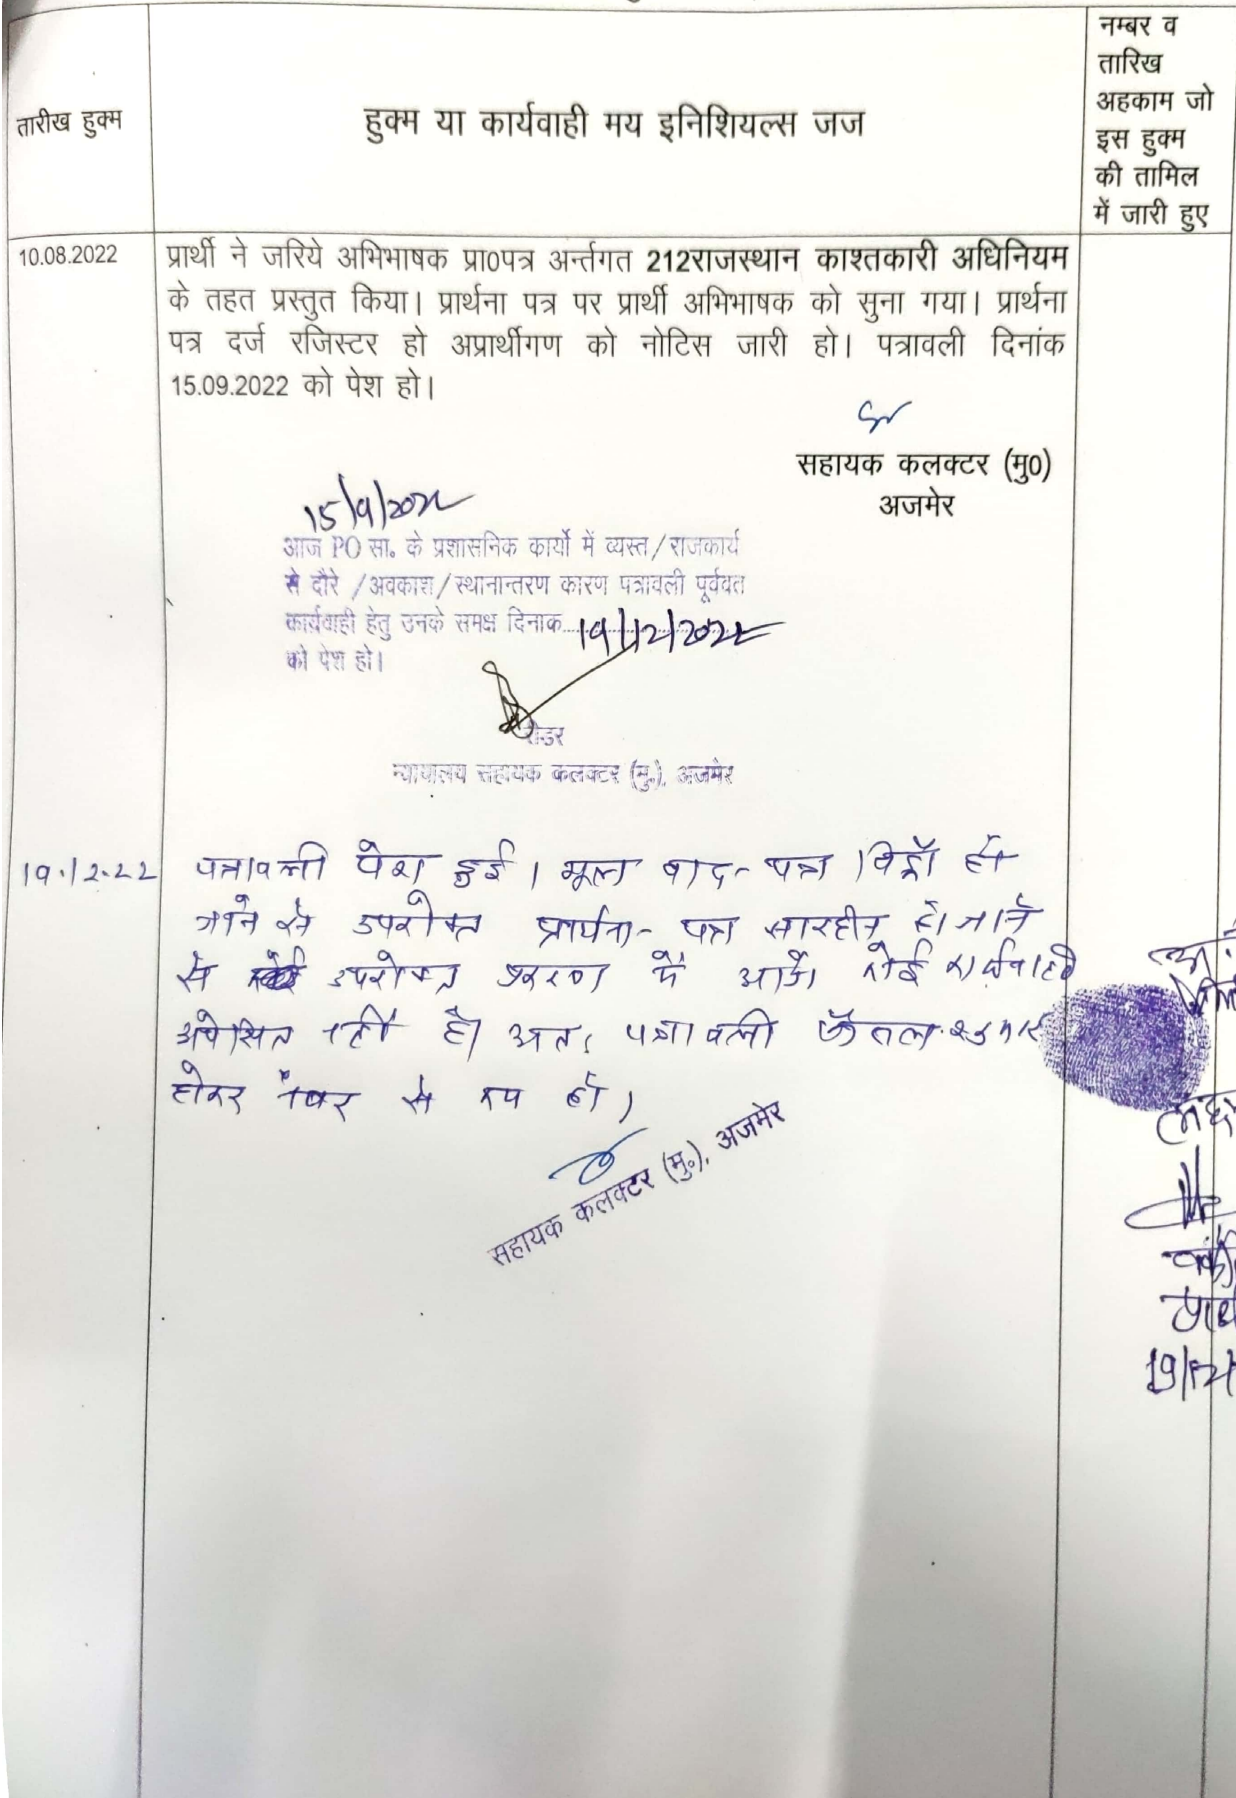 तारीख हुक्म
हुक्म या कार्यवाही मय इनिशियल्स जज
नम्बर व
तारिख
अहकाम जो
इस हुक्म
की तामिल
में जारी हुए
10.08.2022
प्रार्थी ने जरिये अभिभाषक प्रा0पत्र अर्न्तगत 212राजस्थान काश्तकारी अधिनियम
के तहत प्रस्तुत किया। प्रार्थना पत्र पर प्रार्थी अभिभाषक को सुना गया। प्रार्थना
पत्र दर्ज रजिस्टर हो अप्रार्थीगण को नोटिस जारी हो। पत्रावली दिनांक
15.09.2022 को पेश हो।
सहायक कलक्टर (मु0)
अजमेर
15/9/2022
आज PO सा. के प्रशासनिक कार्यो में व्यस्त/राजकार्य
से दौरे /अवकाश/स्थानान्तरण कारण पत्रावली पूर्ववत
कार्यवाही हेतु उनके समक्ष दिनाक....19/12/2022
को पेश हो।
रीडर
न्यायालय सहायक कलक्टर (मु.), अजमेर
19.12.22
पत्रावली पेश हुई। मूल वाद-पत्र विड्रॉ हो
जाने से उपरोक्त प्रार्थना-पत्र सारहीन हो जाने
से उपरोक्त प्रकरण में आगे कोई कार्यवाही
अपेक्षित नहीं है। अतः पत्रावली फैसल शुमार
होकर नंबर से कम हो।
सहायक कलक्टर (मु.), अजमेर
19/12/